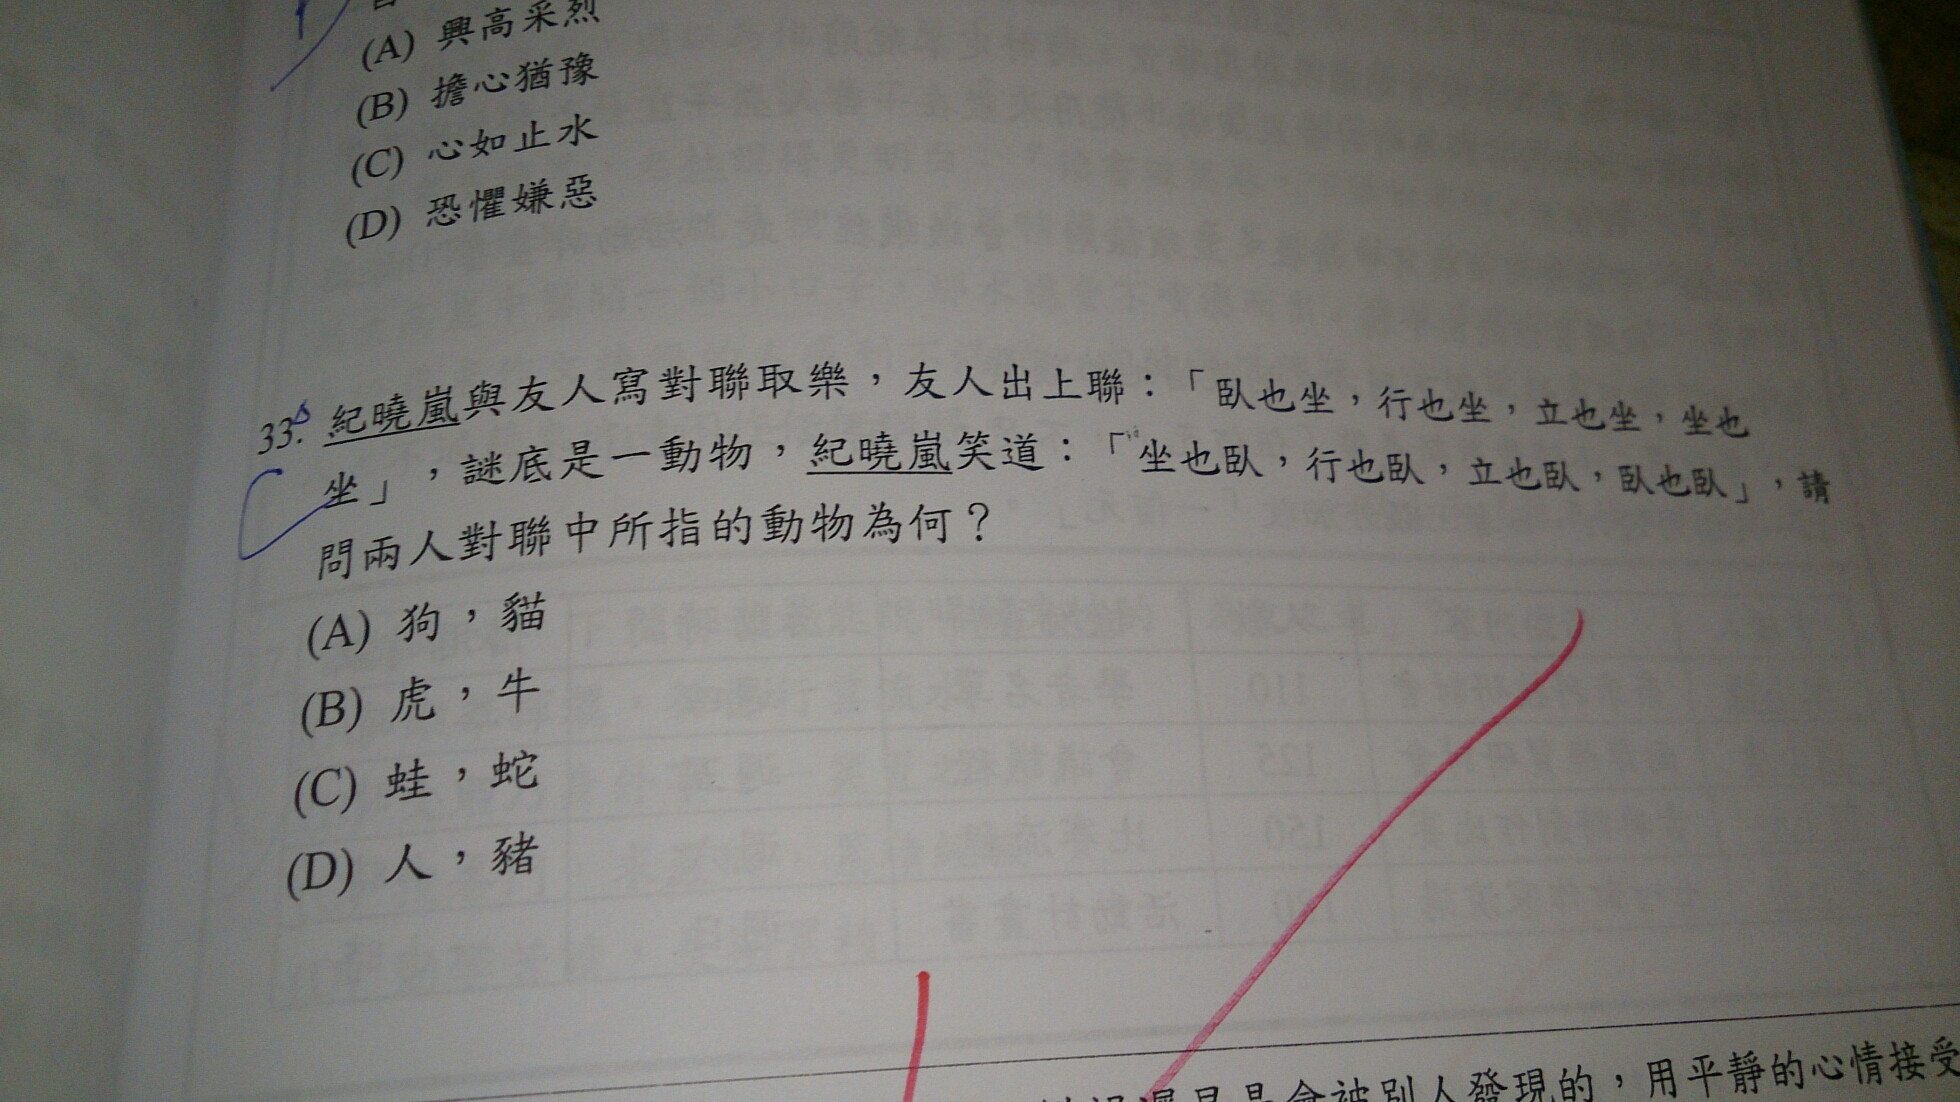 (A) 興高采烈
(B) 擔心猶豫
(C) 心如止水
(D) 恐懼嫌惡
33. 紀曉嵐與友人寫對聯取樂，友人出上聯：「臥也坐，行也坐，立也坐，坐也
坐」，謎底是一動物，紀曉嵐笑道：「坐也臥，行也臥，立也臥，臥也臥」，請
問兩人對聯中所指的動物為何？
(A) 狗，貓
(B) 虎，牛
(C) 蛙，蛇
(D) 人，豬
會被別人發現的，用平靜的心情接受